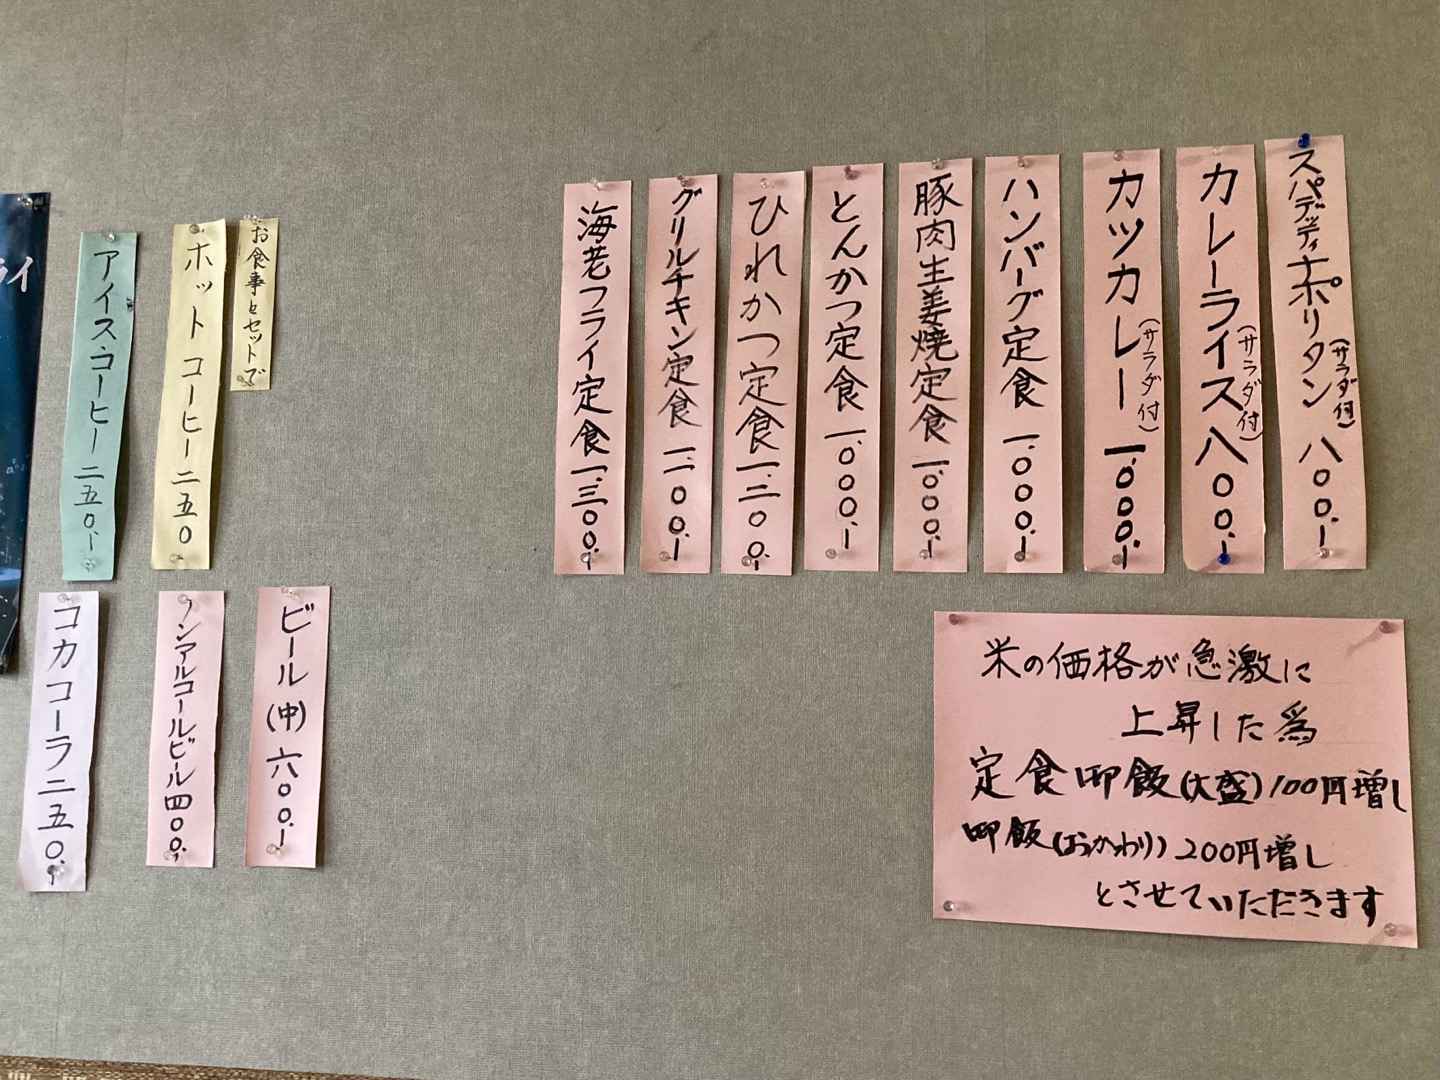 スパゲッティナポリタン(サラダ付)八〇〇.-
カレーライス(サラダ付)八〇〇.-
カツカレー(サラダ付)一.〇〇〇.-
ハンバーグ定食一.〇〇〇.-
豚肉生姜焼定食一.〇〇〇.-
とんかつ定食一.〇〇〇.-
ひれかつ定食一.二〇〇.
グリルチキン定食一.一〇〇.-
海老フライ定食一.三〇〇.-
米の価格が急激に
上昇した為
定食御飯(大盛)100円増し
御飯(おかわり)200円増し
とさせていただきます
お食事とセットで
ホットコーヒー二五〇
アイスコーヒー二五〇.-
ビール(中)六〇〇.-
ノンアルコールビール四〇〇.-
コカコーラ二五〇.-
ライ